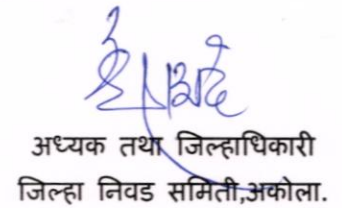 अध्यक तथा जिल्हाधिकारी
जिल्हा निवड समिती,अकोला.